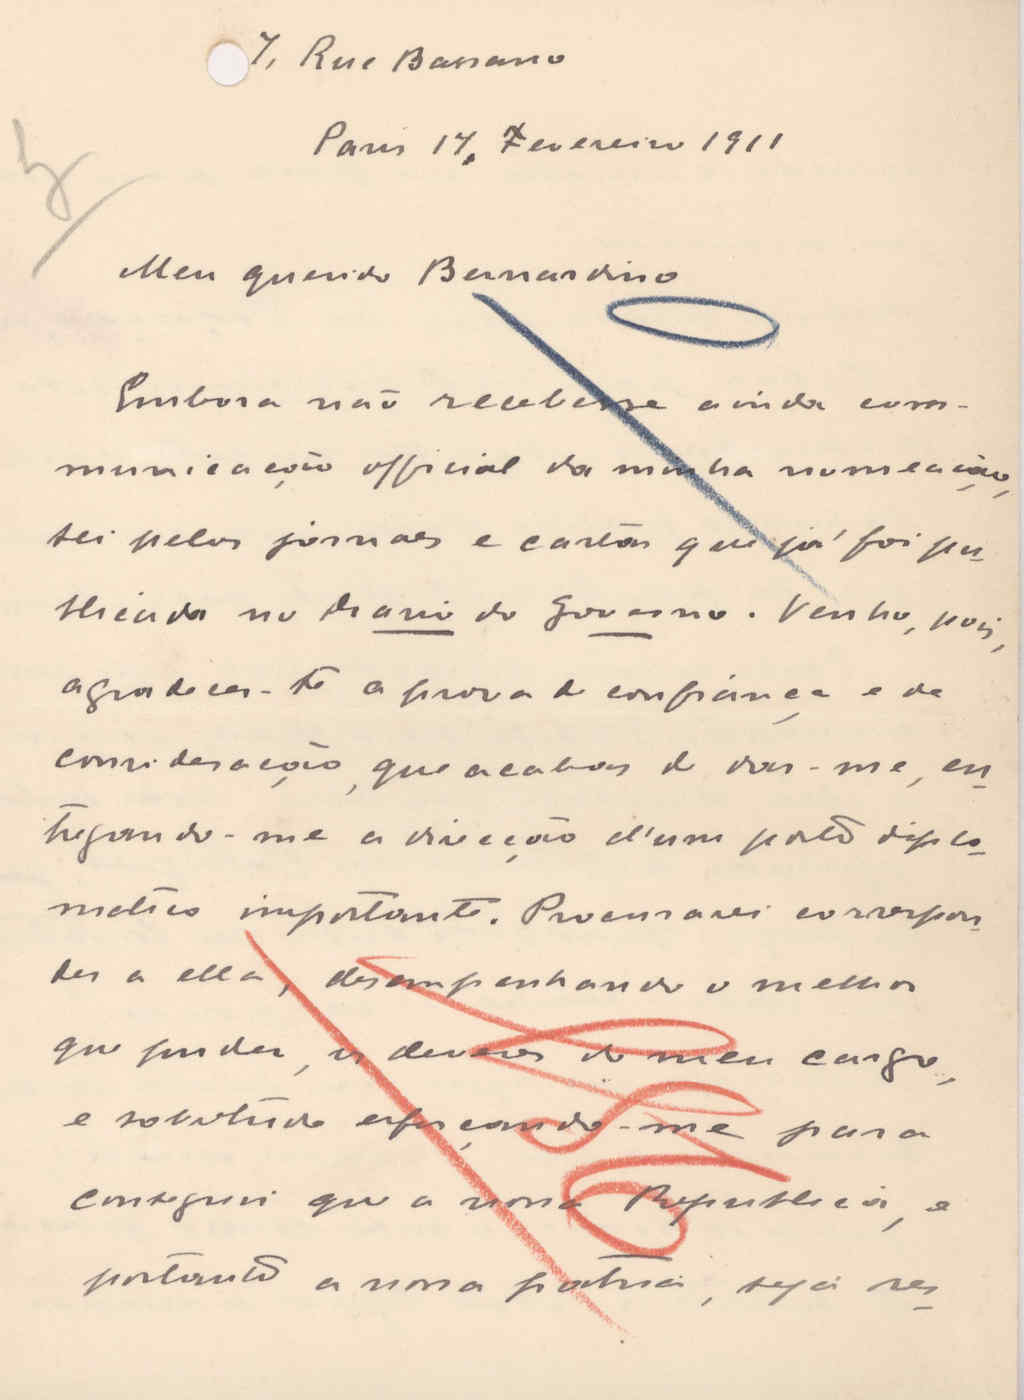 7, Rue Bassano
Paris 17, Fevereiro 1911
Meu querido Bernardino
Embora não recebesse ainda com-
municação official da minha nomeação,
sei pelos jornaes e cartas que já foi pu-
blicada no Diario do Governo. Venho, pois,
agradecer-te a prova de confiança e de
consideração, que acabas de dar-me, en-
tregando-me a direcção d'um posto diplo-
matico importante. Procurarei correspon-
der a ella, desempenhando o melhor
que puder, os deveres do meu cargo,
e sobretudo esforçando-me para
conseguir que a nossa Republica, e
portanto a nossa patria, seja res-